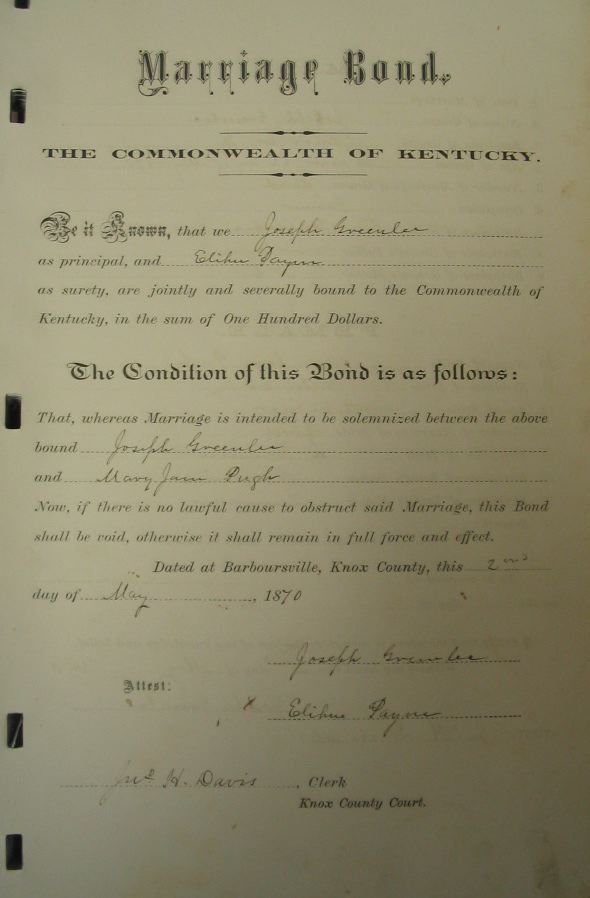 Marriage Bond.
THE COMMONWEALTH OF KENTUCKY.
Be it Known, that we Joseph Greenlee
as principal, and Elihu Payne
as surety, are jointly and severally bound to the Commonwealth of
Kentucky, in the sum of One Hundred Dollars.
The Condition of this Bond is as follows:
That, whereas Marriage is intended to be solemnized between the above
bound Joseph Greenlee
and Mary Jane Pugh
Now, if there is no lawful cause to obstruct said Marriage, this Bond
shall be void, otherwise it shall remain in full force and effect.
Dated at Barboursville, Knox County, this 2nd
day of May, 1870
Joseph Greenlee
Attest:
x Elihu Payne
Jno H. Davis, Clerk
Knox County Court.